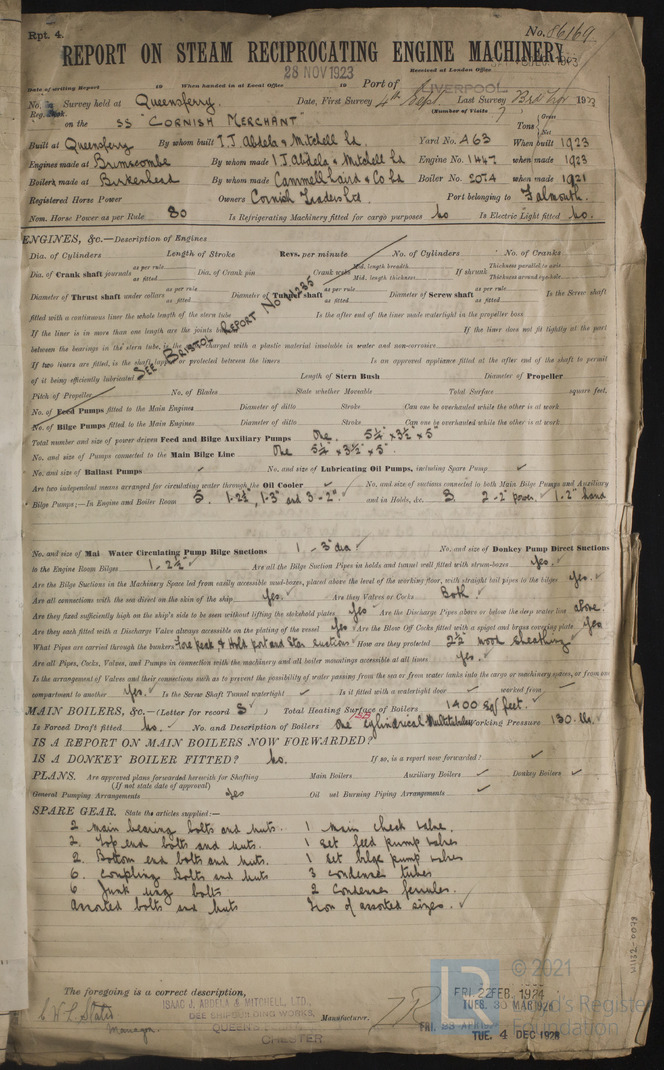 Rpt. 4.
No. 86169
REPORT ON STEAM RECIPROCATING ENGINE MACHINERY.
28 NOV 1923
Received at London Office
Date of writing Report 19 When handed in at Local Office 19 Port of LIVERPOOL
No. in Survey held at Queensferry. Date, First Survey 4th Sept. Last Survey 1923
Reg. Book. (Number of Visits
on the SS "CORNISH MERCHANT" Tons Gross Net
Built at Queensferry By whom built I.J. Abdela & Mitchell Ld. Yard No. 463 When built 1923
Engines made at Brimscombe By whom made I.J. Abdela & Mitchell Ld Engine No. 1447 when made 1923
Boilers made at Birkenhead By whom made Cammell Laird & Co Ld Boiler No. 2054 when made 1921
Registered Horse Power Owners Cornish Traders Ltd Port belonging to Falmouth.
Nom. Horse Power as per Rule 80 Is Refrigerating Machinery fitted for cargo purposes No Is Electric Light fitted No.
ENGINES, &c.—Description of Engines
Dia. of Cylinders Length of Stroke Revs. per minute No. of Cylinders No. of Cranks
Dia. of Crank shaft journals as per rule as fitted Dia. of Crank pin Crank webs Mid. length breadth Mid. length thickness If shrunk Thickness parallel to axis Thickness around eyehole
Diameter of Thrust shaft under collars as per rule as fitted Diameter of Tunnel shaft as per rule as fitted Diameter of Screw shaft as per rule as fitted Is the Screw shaft
SEE BRISTOL REPORT No 11285
fitted with a continuous liner the whole length of the stern tube Is the after end of the liner made watertight in the propeller boss
If the liner is in more than one length are the joints b If the liner does not fit tightly at the part
between the bearings in the stern tube, is the charged with a plastic material insoluble in water and non-corrosive
If two liners are fitted, is the shaft lapped or protected between the liners Is an approved appliance fitted at the after end of the shaft to permit
of it being efficiently lubricated Length of Stern Bush Diameter of Propeller
Pitch of Propeller No. of Blades State whether Moveable Total Surface square feet.
No. of Feed Pumps fitted to the Main Engines Diameter of ditto Stroke Can one be overhauled while the other is at work
No. of Bilge Pumps fitted to the Main Engines Diameter of ditto Stroke Can one be overhauled while the other is at work
Total number and size of power driven Feed and Bilge Auxiliary Pumps One. 5¼" x 3½" x 5"
No. and size of Pumps connected to the Main Bilge Line One 5¼" x 3½" x 5".
No. and size of Ballast Pumps ✓ No. and size of Lubricating Oil Pumps, including Spare Pump ✓
Are two independent means arranged for circulating water through the Oil Cooler ✓ No. and size of suctions connected to both Main Bilge Pumps and Auxiliary
Bilge Pumps;—In Engine and Boiler Room 5. 1-2½", 1-3" and 3-2". and in Holds, &c. 3. 2-2" power. ✓ 1-2" hand
No. and size of Main Water Circulating Pump Bilge Suctions 1 - 3" dia ✓ No. and size of Donkey Pump Direct Suctions
to the Engine Room Bilges 1-2½" ✓ Are all the Bilge Suction Pipes in holds and tunnel well fitted with strum-boxes yes. ✓
Are the Bilge Suctions in the Machinery Space led from easily accessible mud-boxes, placed above the level of the working floor, with straight tail pipes to the bilges yes. ✓
Are all connections with the sea direct on the skin of the ship yes. ✓ Are they Valves or Cocks Both ✓
Are they fixed sufficiently high on the ship's side to be seen without lifting the stokehold plates yes ✓ Are the Discharge Pipes above or below the deep water line above. ✓
Are they each fitted with a Discharge Valve always accessible on the plating of the vessel yes ✓ Are the Blow Off Cocks fitted with a spigot and brass covering plate yes
What Pipes are carried through the bunkers Fore peak & Hold port and Star suctions How are they protected 2½" wood sheathing ✓
Are all Pipes, Cocks, Valves, and Pumps in connection with the machinery and all boiler mountings accessible at all times yes. ✓
Is the arrangement of Valves and their connections such as to prevent the possibility of water passing from the sea or from water tanks into the cargo or machinery spaces, or from one
compartment to another yes. ✓ Is the Screw Shaft Tunnel watertight ✓ Is it fitted with a watertight door ✓ worked from ✓
MAIN BOILERS, &c.—(Letter for record S ✓) Total Heating Surface of Boilers 1400 sq/ feet. ✓
Is Forced Draft fitted No. ✓ No. and Description of Boilers One Cylindrical Multitubular Working Pressure 130. lbs. ✓
IS A REPORT ON MAIN BOILERS NOW FORWARDED?
IS A DONKEY BOILER FITTED? No. If so, is a report now forwarded? ✓
PLANS. Are approved plans forwarded herewith for Shafting Main Boilers Auxiliary Boilers ✓ Donkey Boilers ✓
(If not state date of approval)
General Pumping Arrangements yes Oil uel Burning Piping Arrangements ✓
SPARE GEAR. State the articles supplied:—
2 main bearing bolts and nuts. 1 main check valve.
2. Top end bolts and nuts. 1 set feed pump valves
2. Bottom end bolts and nuts. 1 set bilge pump valves
6. Coupling bolts and nuts 3 condenser tubes
6 Junk ring bolts 2 Condenser ferrules.
Assorted bolts and nuts Iron of assorted sizes. ✓
The foregoing is a correct description,
ISAAC J. ABDELA & MITCHELL, LTD.,
DEE SHIPBUILDING WORKS,
QUEENSFERRY,
CHESTER
Manager. Manufacturer.
FRI. 22 FEB 1924
TUE. 4 DEC 1928
© 2021
Lloyd's Register
Foundation